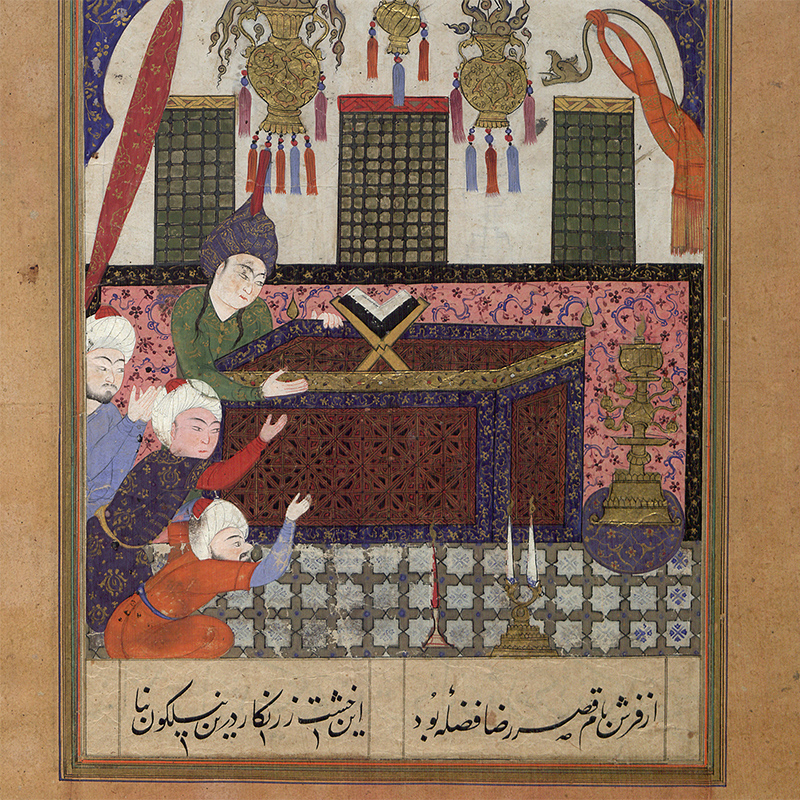 از فرش بام قصر رضا فضلهٔ بُود این خشت زرنکار درین نیلکون بنا